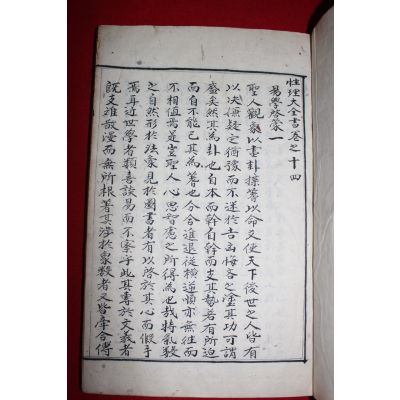 性理大全書卷之十四
易學啓蒙一
聖人觀象以畫卦揲蓍以命爻使天下後世之人皆有
以决嫌疑定猶豫而不迷於吉凶悔吝之塗其功可謂
盛矣然其爲卦也自本而幹自幹而支其勢若有所迫
而自不能已其爲蓍也分合進退從橫逆順亦無往而
不相值焉是豈聖人心思智慮之所得爲也哉特氣數
之自然形於法象見於圖書者有以啓於其心而假手
焉耳近世學者類喜談易而不察乎此其專於文義者
既支離散漫而無所根著其涉於象數者又皆牽合傅